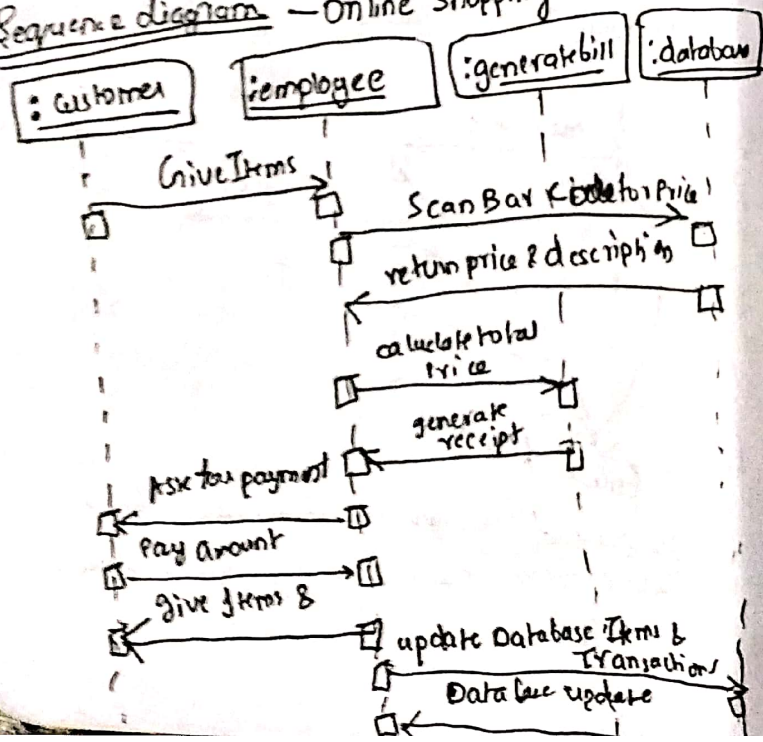 Sequence diagram - Online Shopping
: Customer
:employee
:generatebill
:databas
Give Items
Scan Bar Kode for Price
return price & description
caluclate total
Price
generate
receipt
Ask for payment
Pay amount
give Items &
update Database Items &
Transactions
Data base update